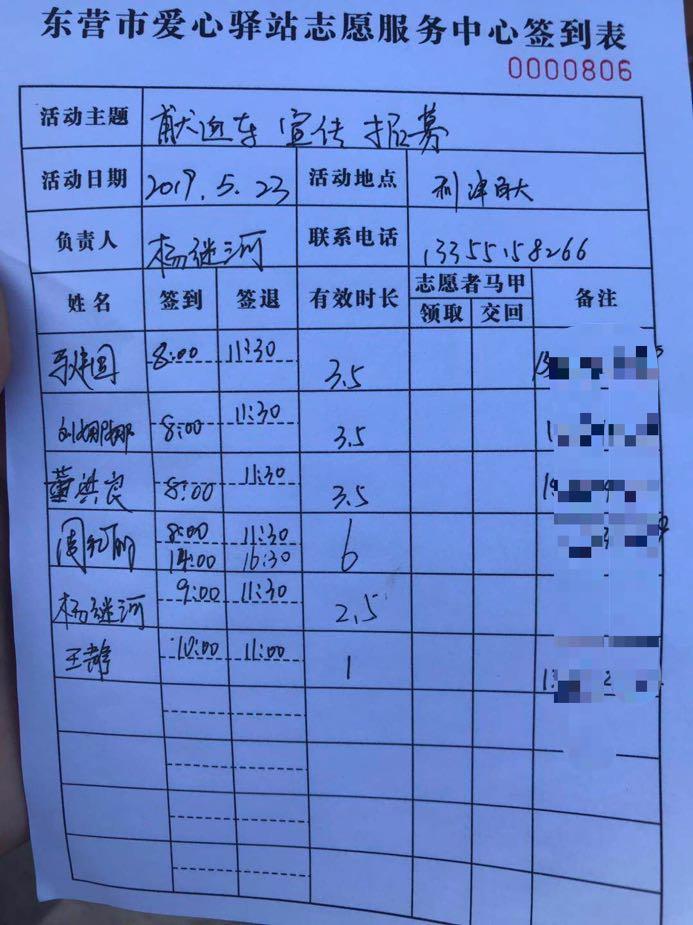 东营市爱心驿站志愿服务中心签到表
0000806
活动主题 献血车 宣传 招募
活动日期 2019.5.23 活动地点 利津百大
负责人 杨继河 联系电话 13355158266
姓名 签到 签退 有效时长 志愿者马甲 备注
领取 交回
8:00 11:30 3.5
刘娜娜 8:00 11:30 3.5
董洪良 8:00 11:30 3.5
周红丽 8:00 11:30 6
14:00 16:30
杨继河 9:00 11:30 2.5
王静 10:00 11:00 1